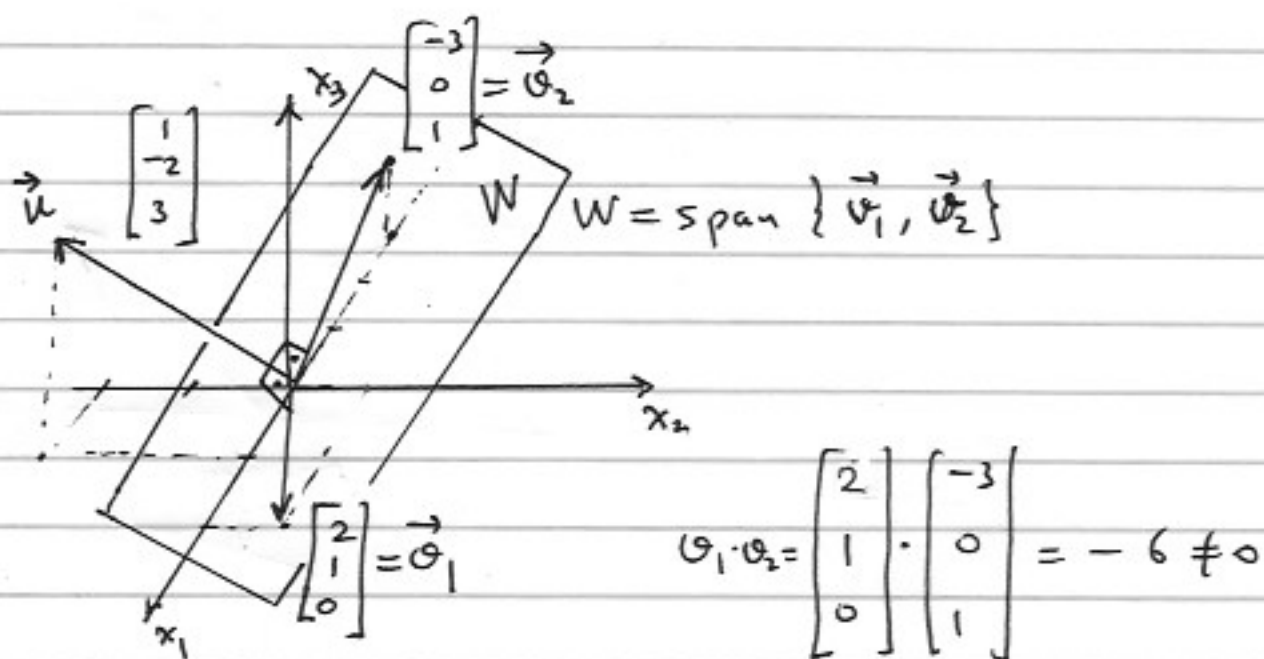 [-3
0
1] = v⃗₂
x₃
[1
-2
3]
u⃗
W
W = span { v⃗₁, v⃗₂ }
x₂
[2
1
0] = v⃗₁
x₁
v₁·v₂ = [2
1
0] · [-3
0
1] = - 6 ≠ 0